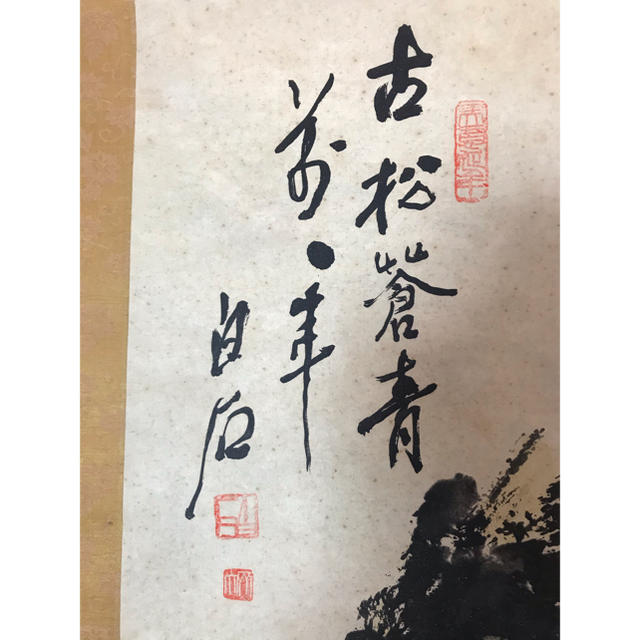 古松蒼青
萬〻年
白石